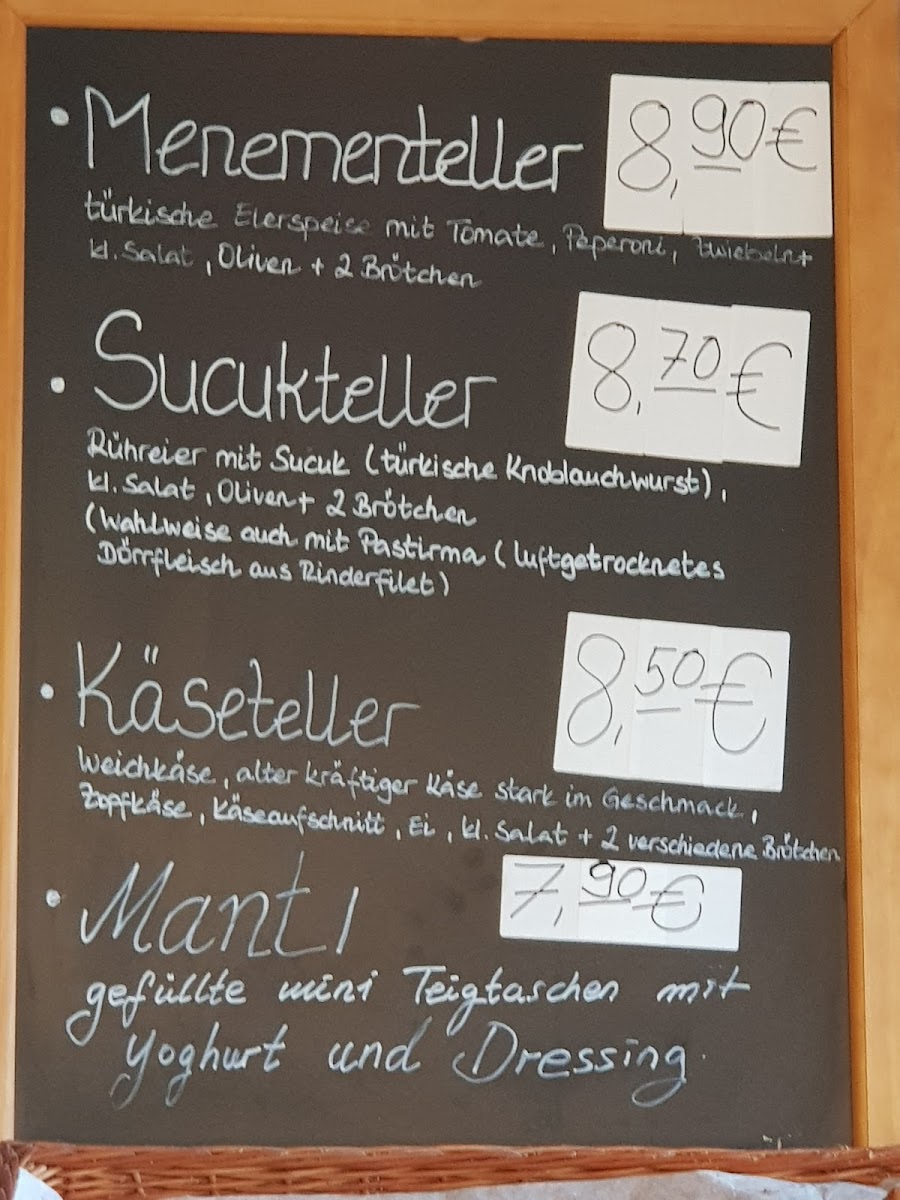 • Menementeller 8,90€
türkische Eierspeise mit Tomate, Peperoni, Zwiebeln +
kl. Salat, Oliven + 2 Brötchen
• Sucukteller 8,70€
Rühreier mit Sucuk (türkische Knoblauchwurst),
kl. Salat, Oliven + 2 Brötchen
(Wahlweise auch mit Pastirma (luftgetrocknetes
Dörrfleisch aus Rinderfilet)
• Käseteller 8,50€
Weichkäse, alter kräftiger Käse stark im Geschmack,
Zopfkäse, Käseaufschnitt, Ei, kl. Salat + 2 verschiedene Brötchen
• Mantı 7,90€
gefüllte mini Teigtaschen mit
Yoghurt und Dressing.